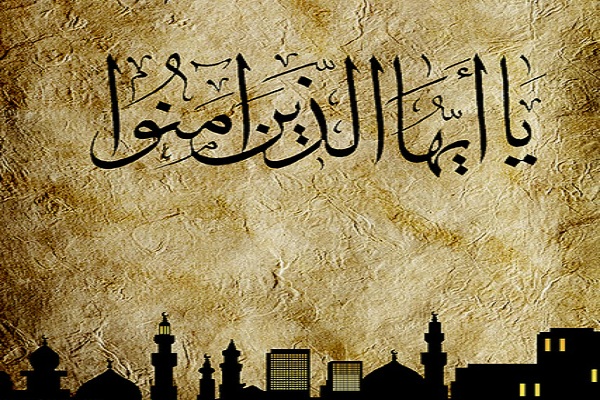 يَا أَيُّهَا الَّذِينَ آمَنُوا